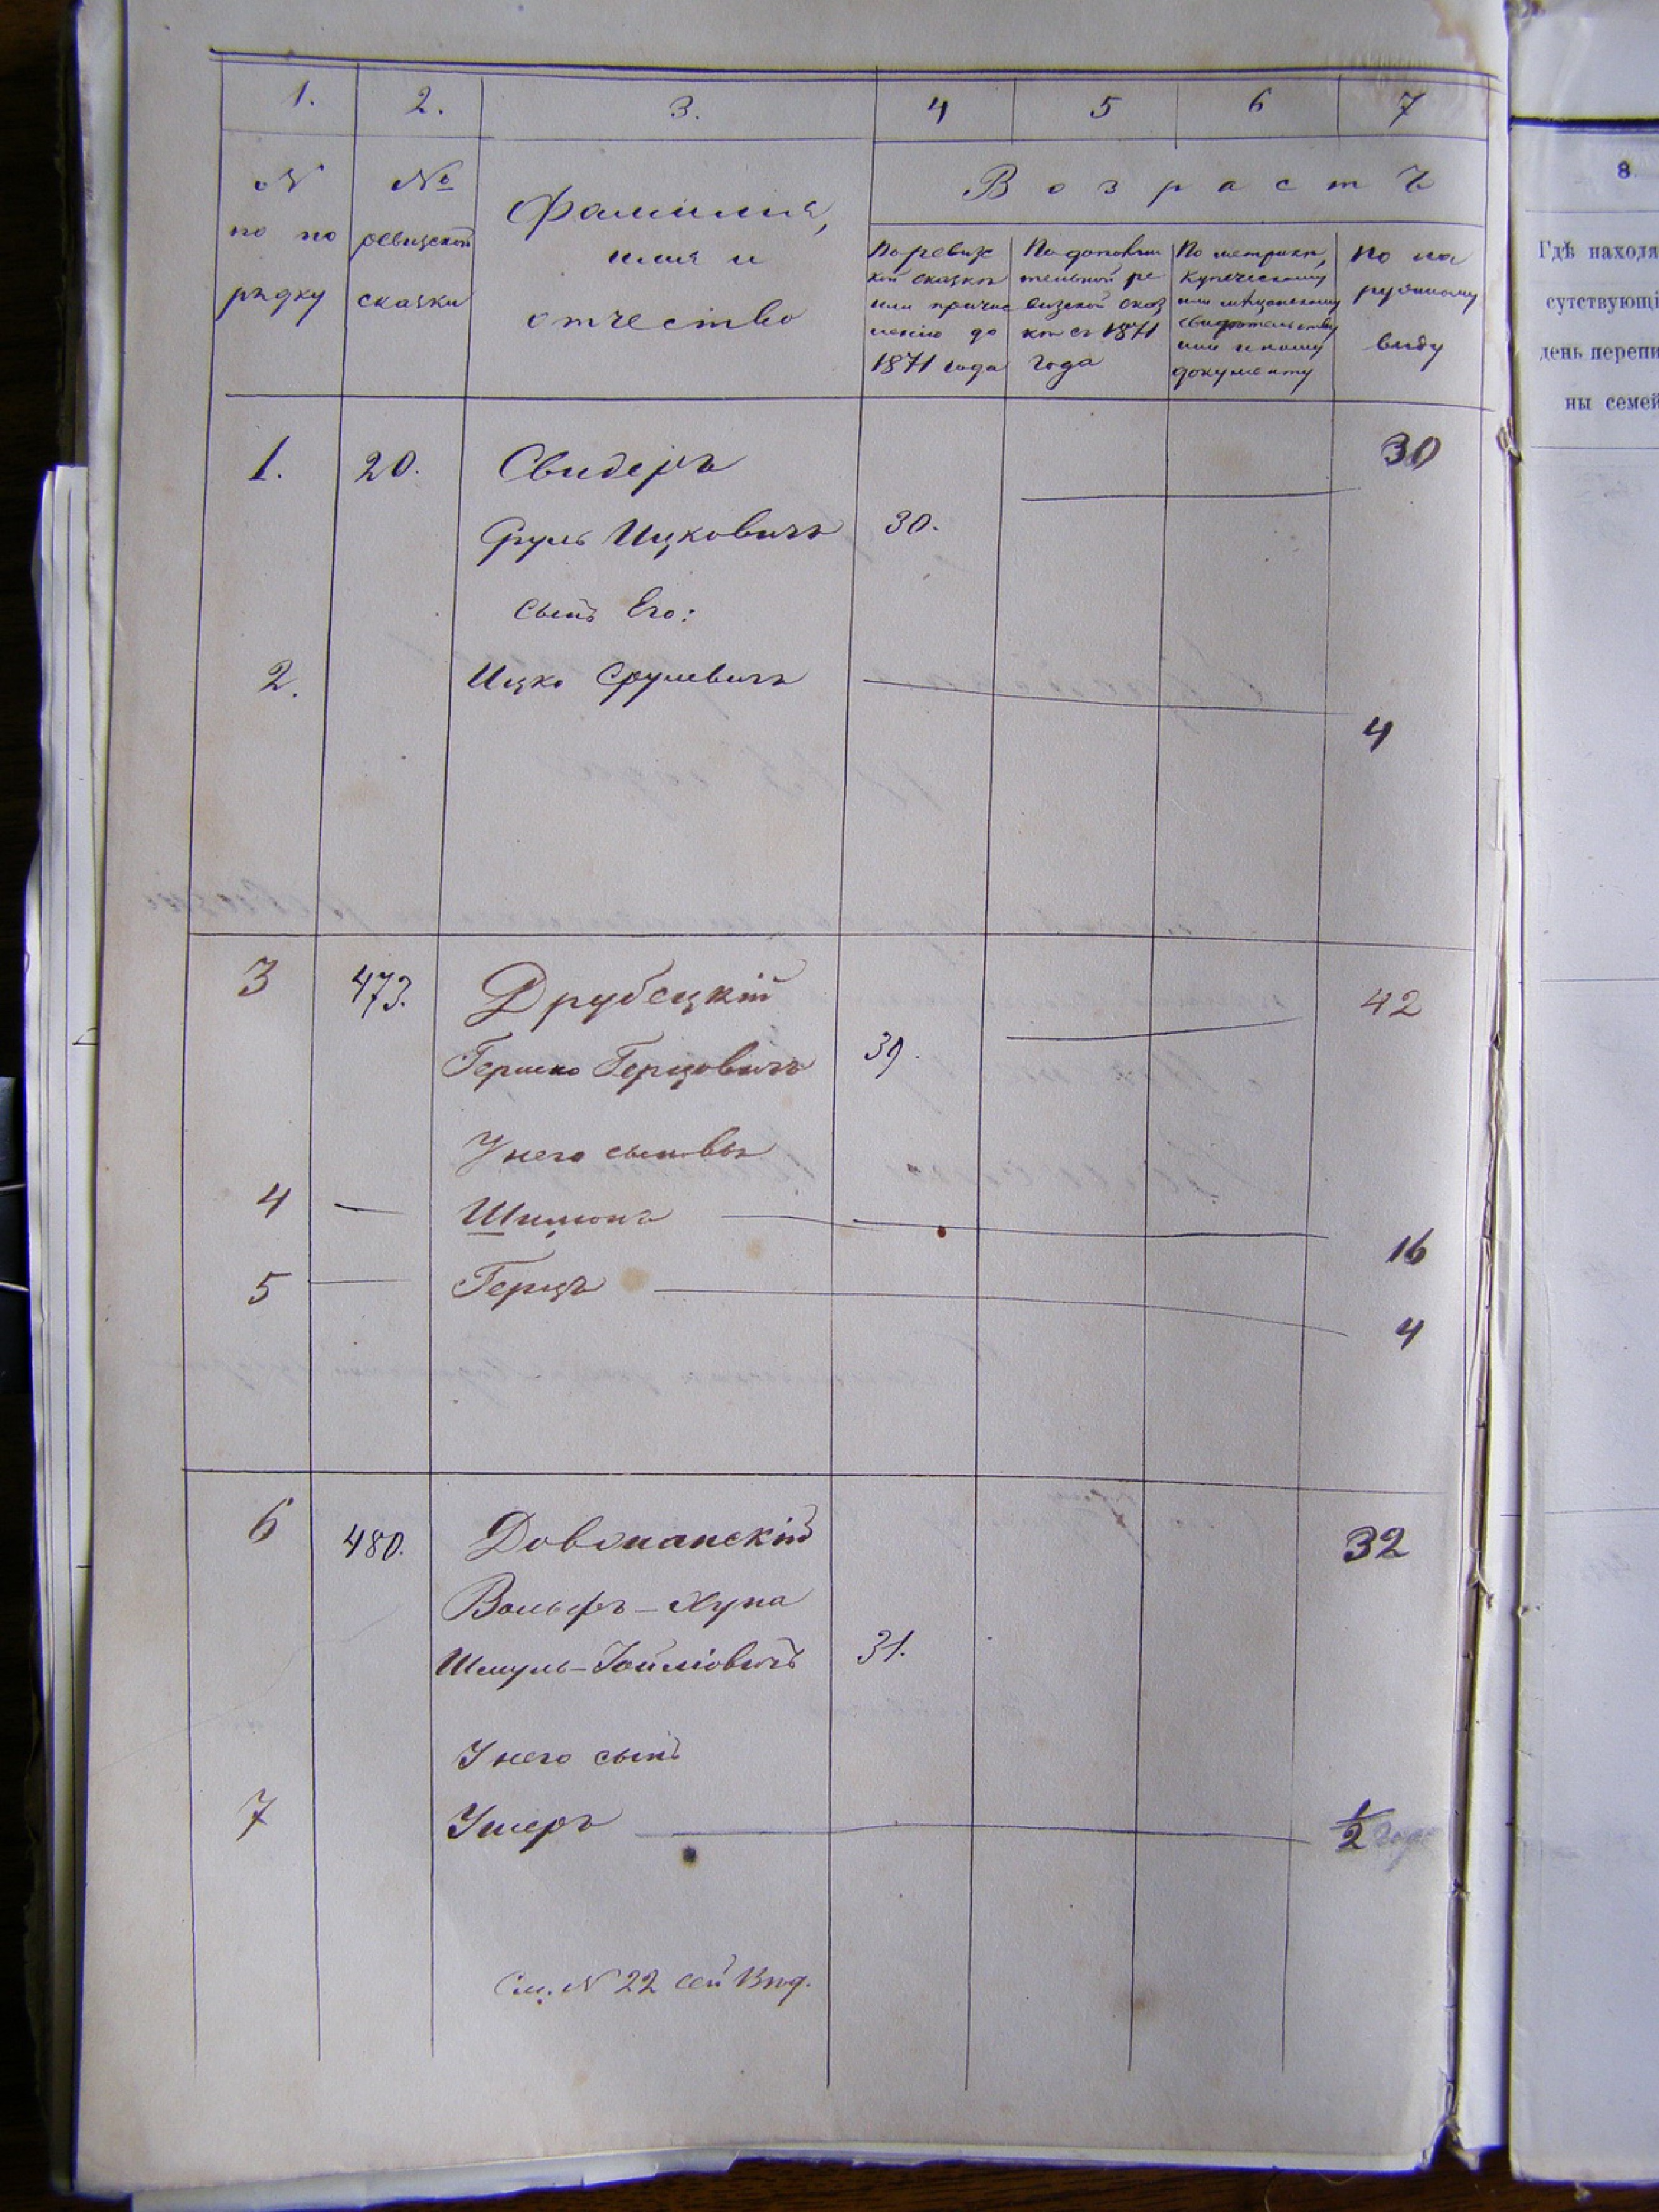 1. 2. 3. 4 5 6 7
В о з р а с т ъ
№ по по рядку
№ ревизской сказки
Фамилия,
имя и
отчество
По ревиз
кой сказкѣ
или причис
лению до
1871 года
По дополни
тельной ре
визской сказ
кѣ съ 1871
года
По метрикѣ,
купеческому
или мѣщанскому
свидѣтельству
или иному
документу
По на
ружному
виду
1. 20. Свидеръ 30
Сруль Ицковичъ 30.
Сынъ Его:
2. Ицко Срулевичъ
4
3 473. Друбецкій 42
Гершко Герцовичъ 39.
У него сыновья
4 — Шимонъ
16
5 — Герцъ
4
6 480. Довонанскій 32
Вольфъ-Хуна
Шмуль-Іойліовичъ 31.
У него сынъ
7 Ушеръ 1/2 года
См. № 22 сей
8
Гдѣ находя
сутствующі
день перепи
ны семей